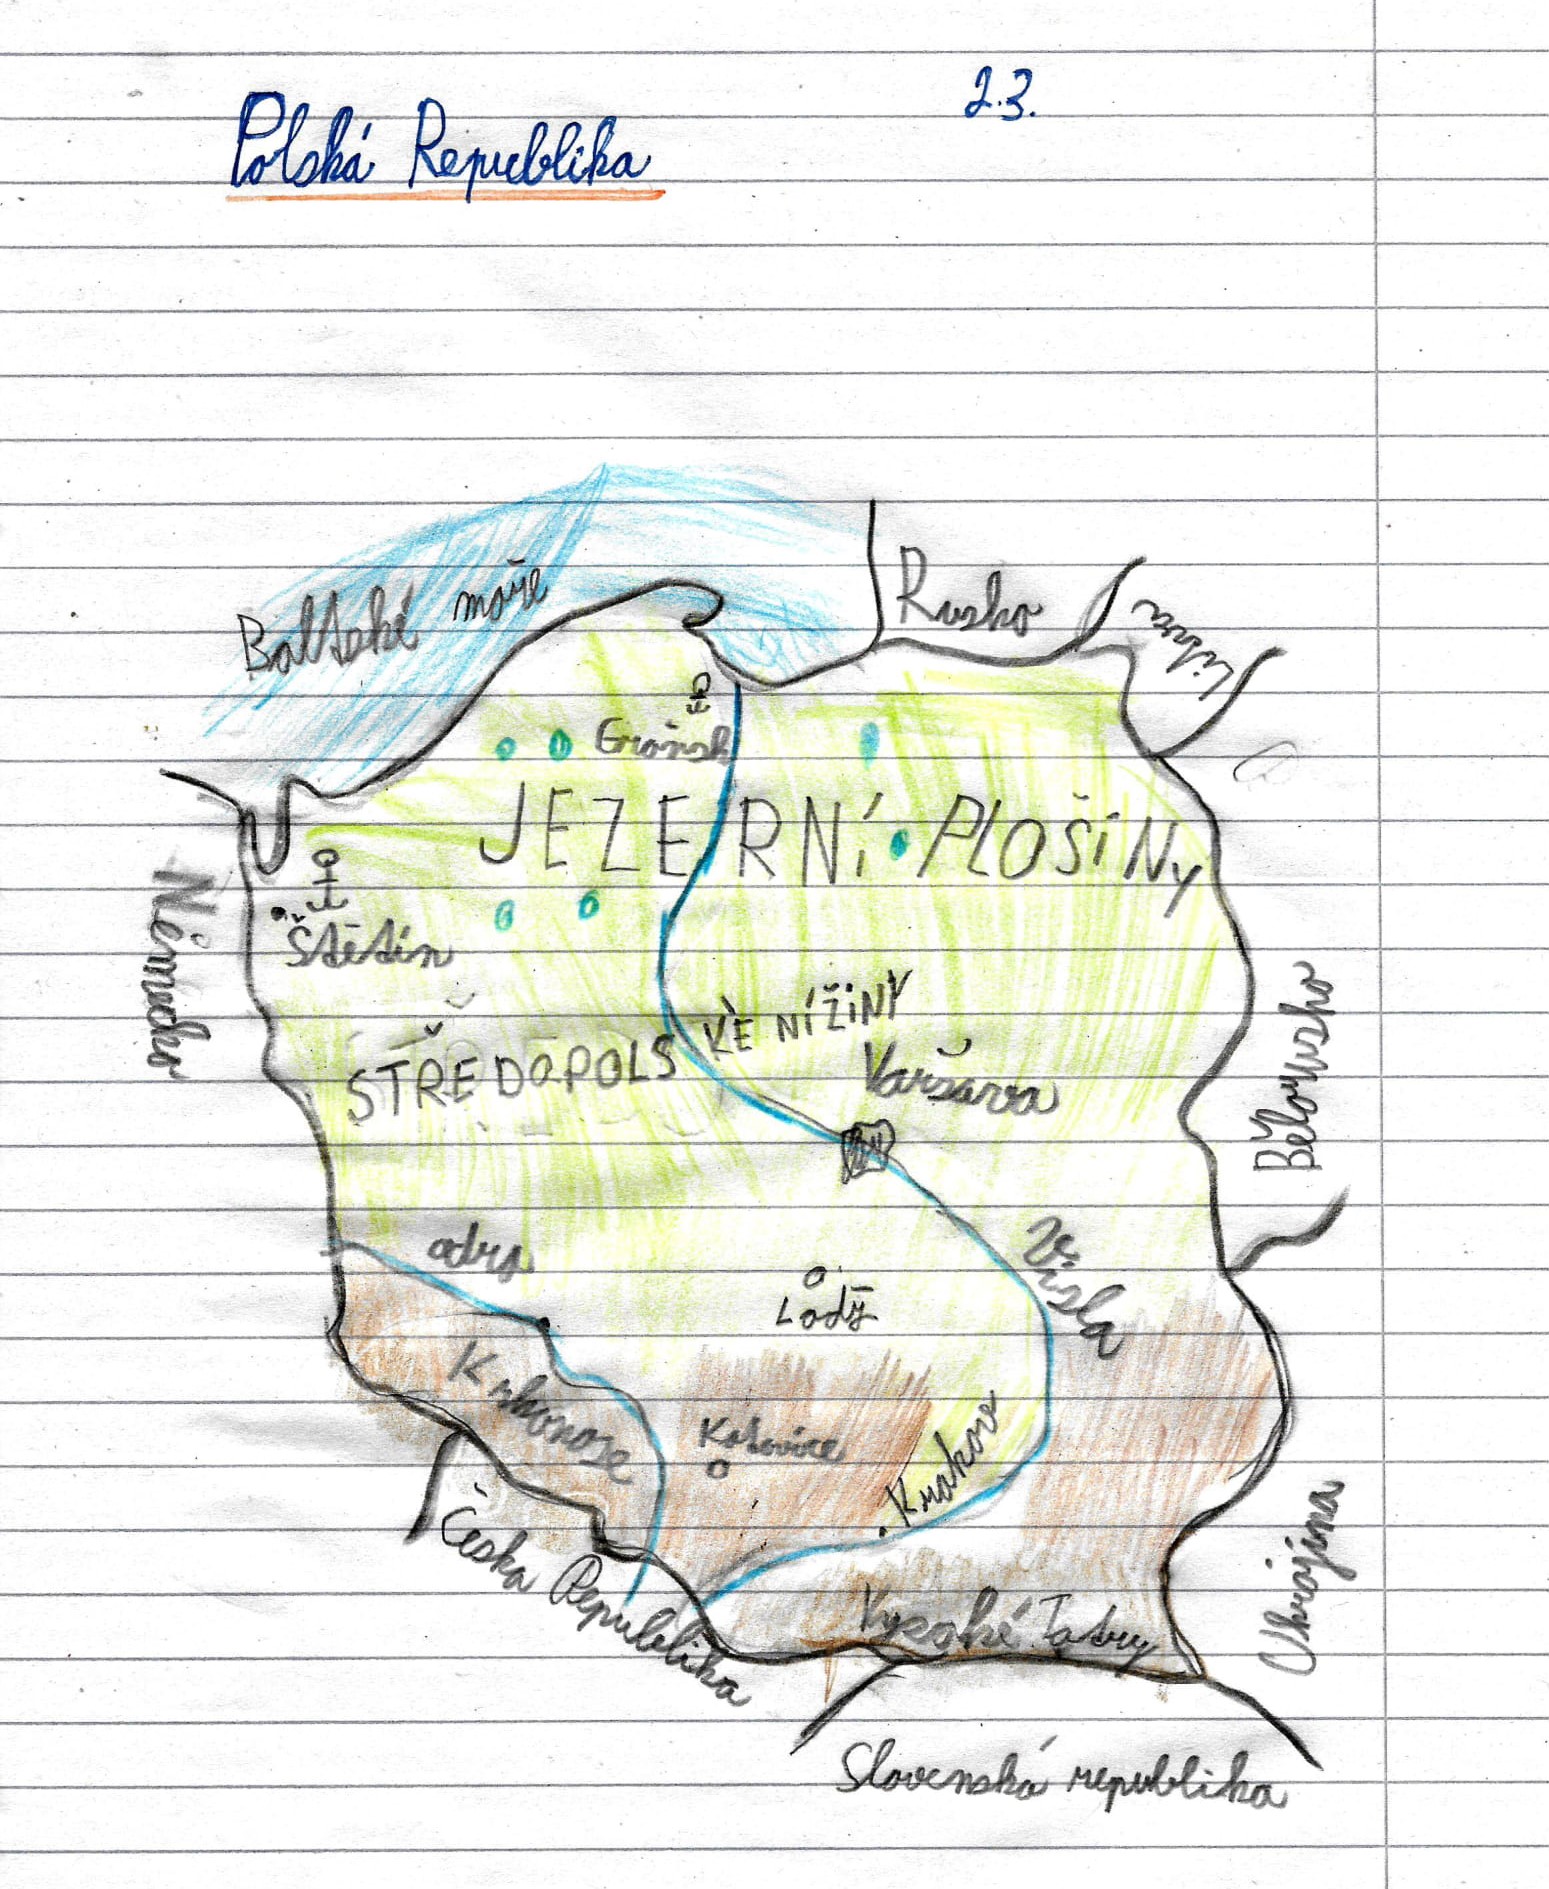 2.3.
Polská Republika
Baltské moře
Rusko
Litva
Grańsk
JEZERNÍ PLOŠINY
Štětín
Německo
STŘEDOPOLSKÈ NÍŽINY
Varšava
Bělorusko
odra
Visla
Lodž
Krkonoše
Katovice
Krakov
Česka Republika
Vysoké Tatry
Ukrajina
Slovenská republika